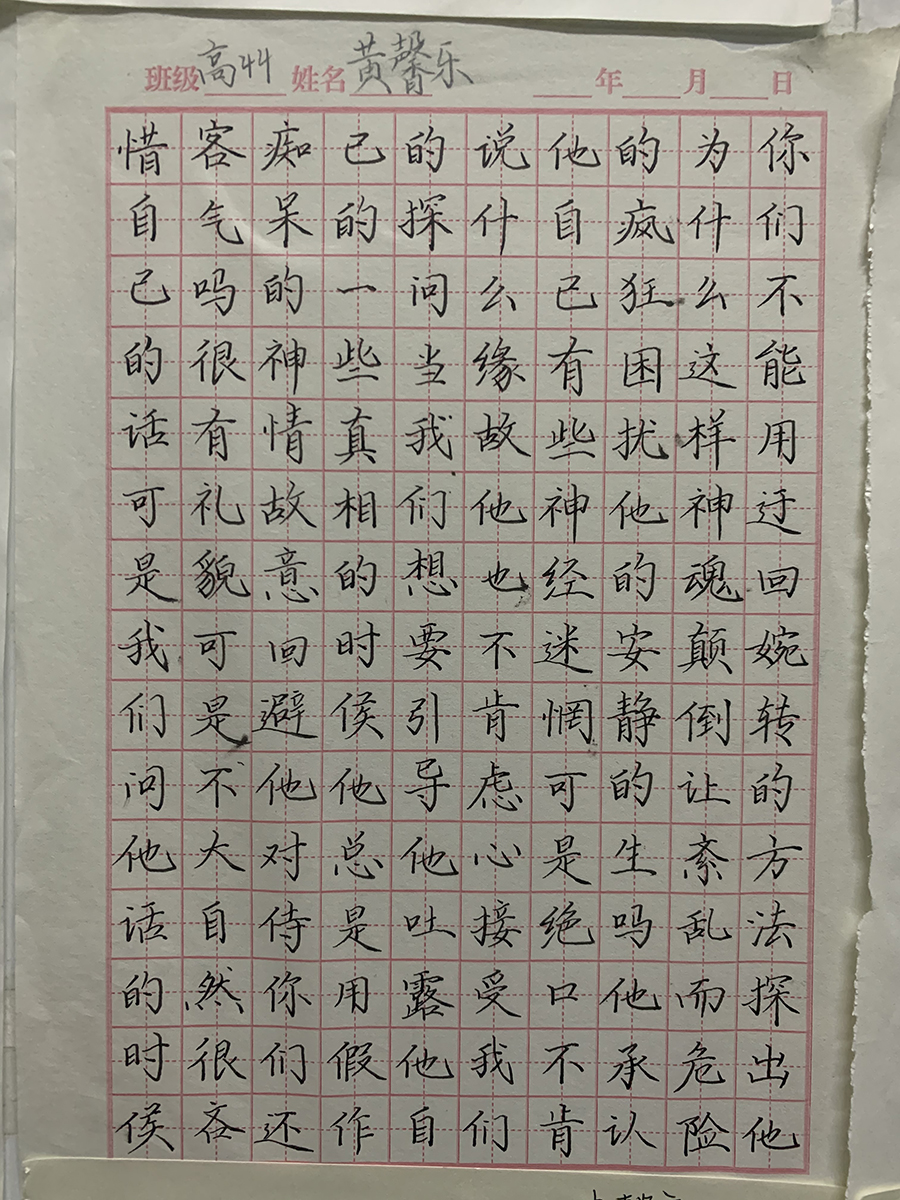 班级 姓名黄馨乐 年 月 日
你们不能用迂回婉转的方法探出他
为什么这样神魂颠倒让紊乱而危险
的疯狂困扰他的安静的生吗他承认
他自己有些神经迷惘可是绝口不肯
说什么缘故他也不肯虑心接受我们
的探问当我们想要引导他吐露他自
己的一些真相的时候他总是用假作
痴呆的神情故意回避他对待你们还
客气吗很有礼貌可是不大自然很吝
惜自己的话可是我们问他话的时候